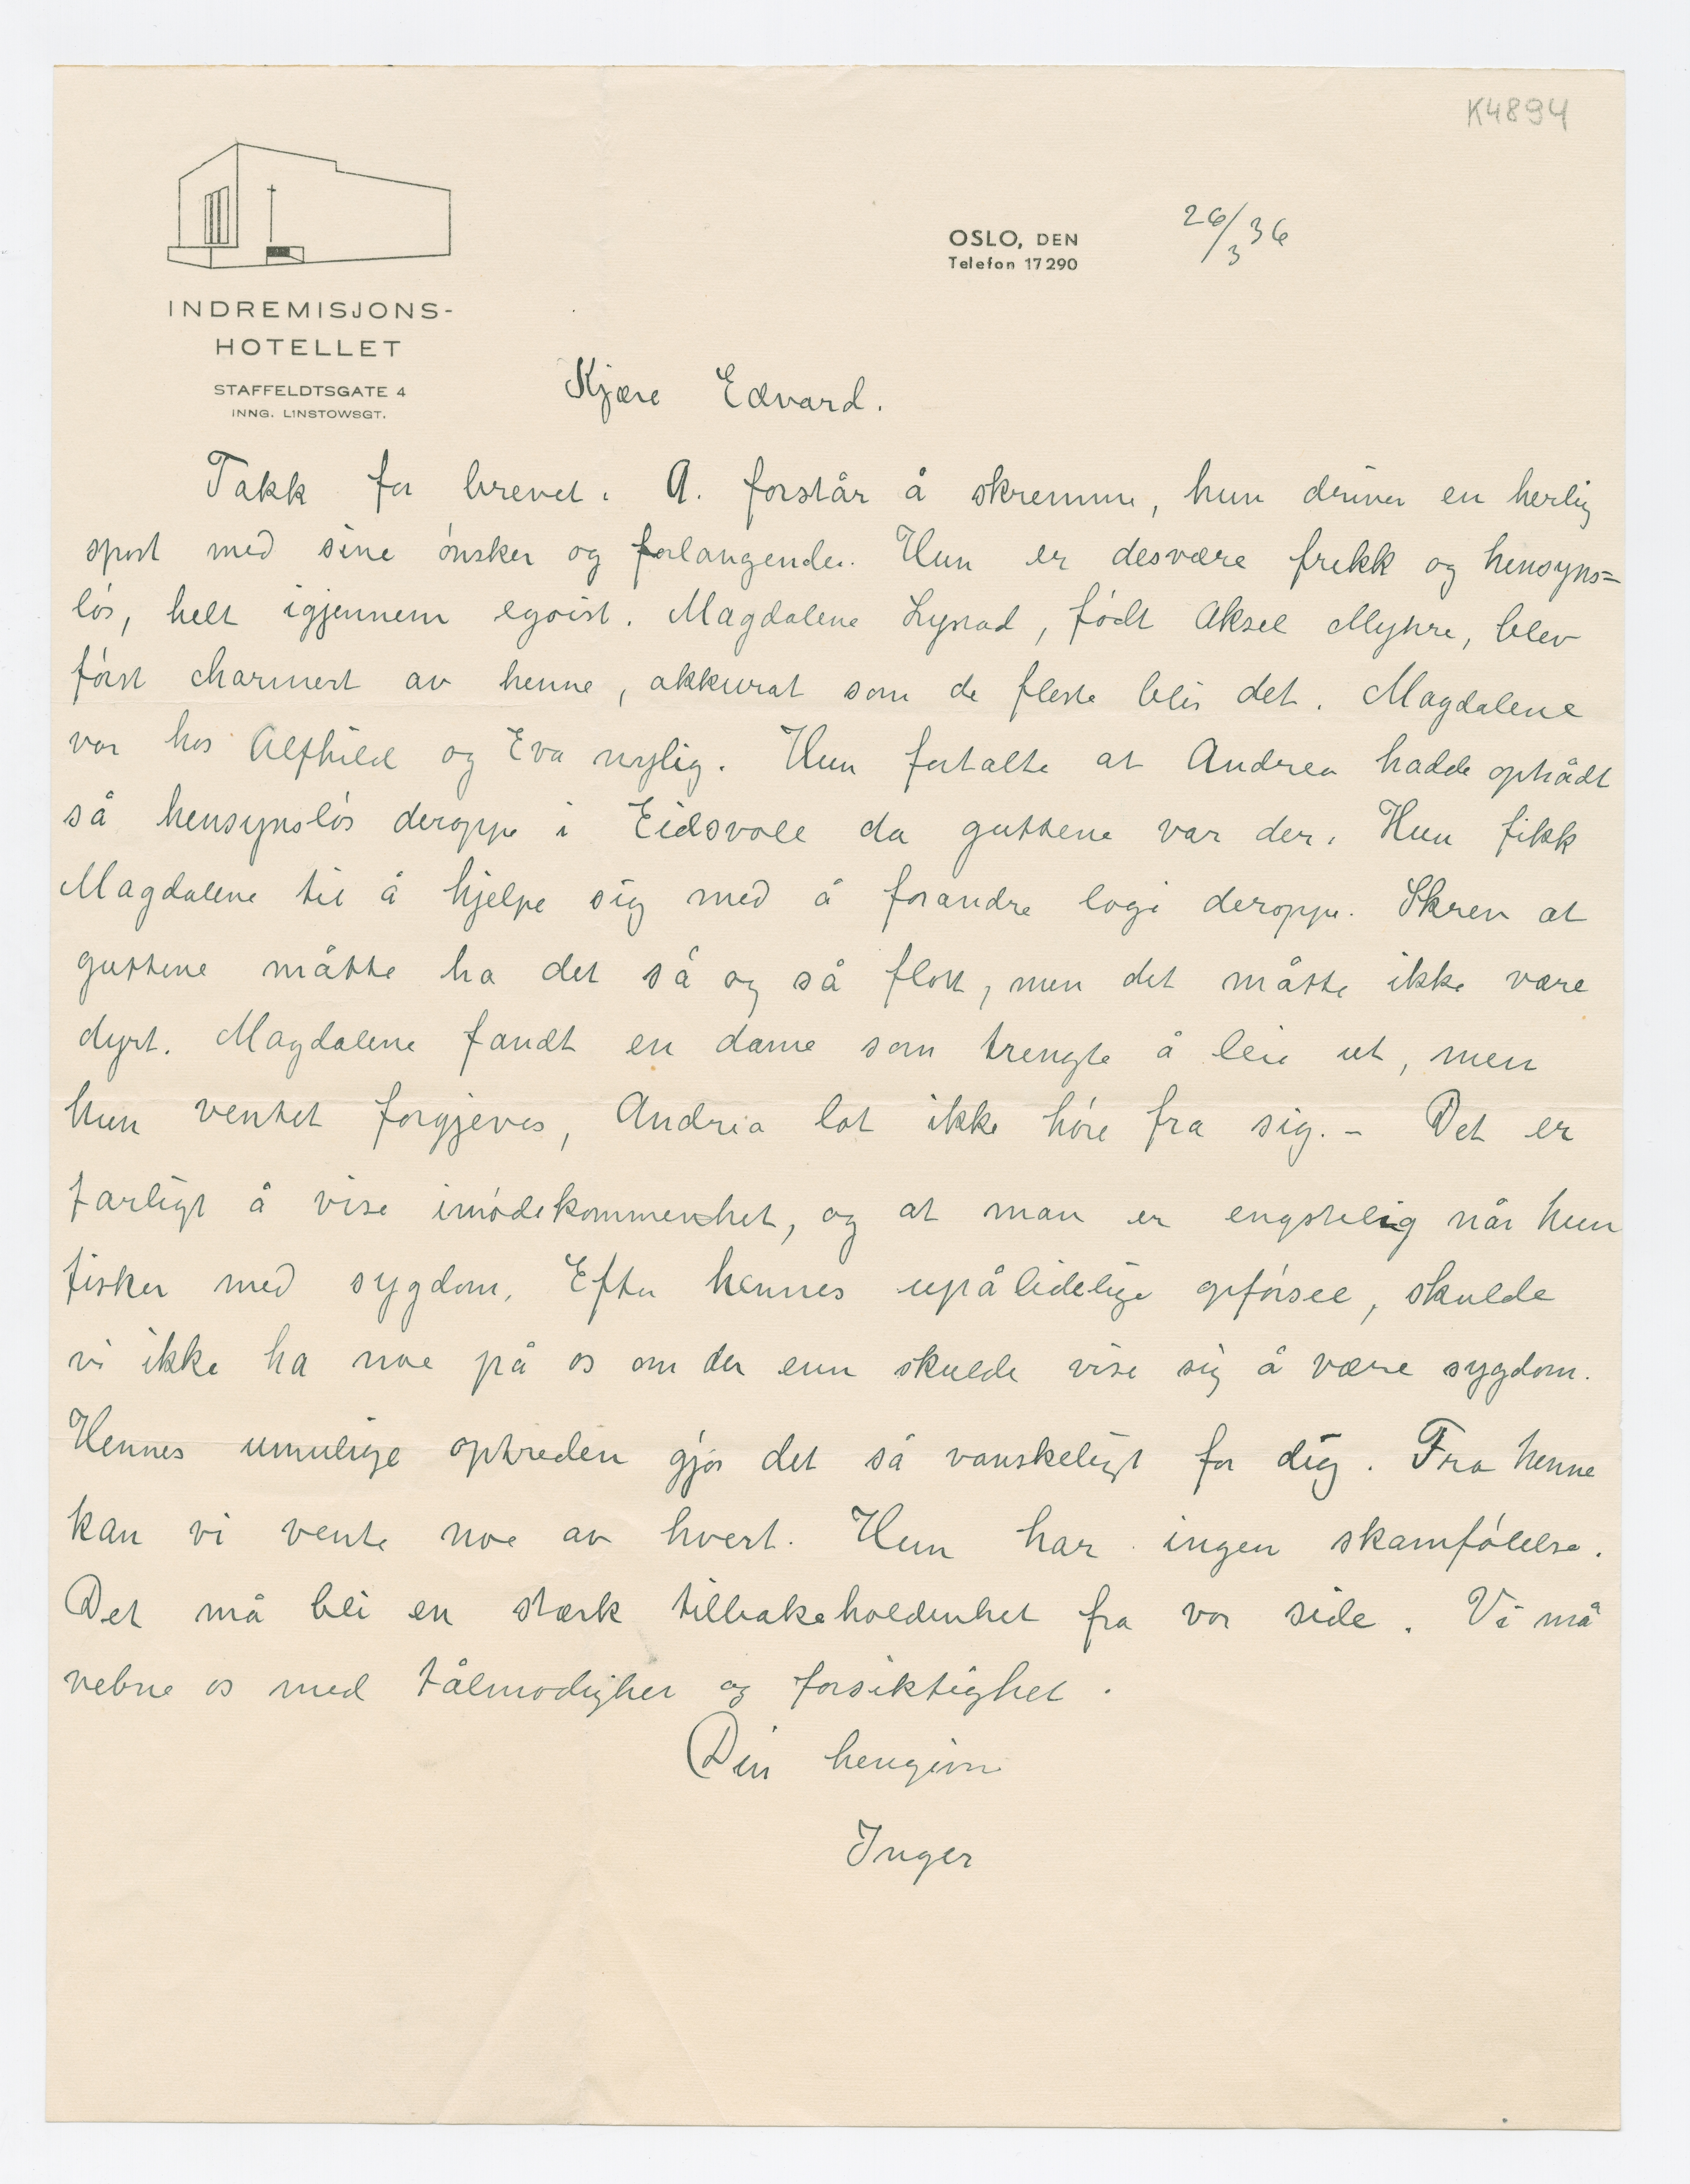 K4894
OSLO, DEN 26/3 36
Telefon 17290
INDREMISJONS-
HOTELLET
STAFFELDTSGATE 4
INNG. LINSTOWSGT.
Kjære Edvard.
Takk for brevet. A. forstår å skremme, hun driver en herlig
sport med sine ønsker og forlangender. Hun er desværre frekk og hensyns=
løs, helt igjennem egoist. Magdalene Lystad, født Aksel Myhre, blev
først charmert av henne, akkurat som de fleste blir det. Magdalene
var hos Alfhild og Eva nylig. Hun fortalte at Andrea hadde optrådt
så hensynsløs deroppe i Eidsvoll da guttene var der. Hun fikk
Magdalene til å hjelpe sig med å forandre logi deroppe. Skrev at
guttene måtte ha det så og så flott, men det måtte ikke være
dyrt. Magdalene fandt en dame som trengte å leie ut, men
hun ventet forgjeves, Andrea lot ikke høre fra sig. – Det er
farligt å vise imødekommenhet, og at man er engstelig når hun
fisker med sygdom. Efter hennes upålidelige opførsel, skulde
vi ikke ha noe på os om der enn skulde vise sig å være sygdom.
Hennes umulige optreden gjør det så vanskeligt for dig. Fra henne
kan vi vente noe av hvert. Hun har ingen skamfølelse.
Det må bli en stærk tilbakeholdenhet fra vor side. Vi må
vebne os med tålmodighet og forsiktighet.
Din hengivne
Inger